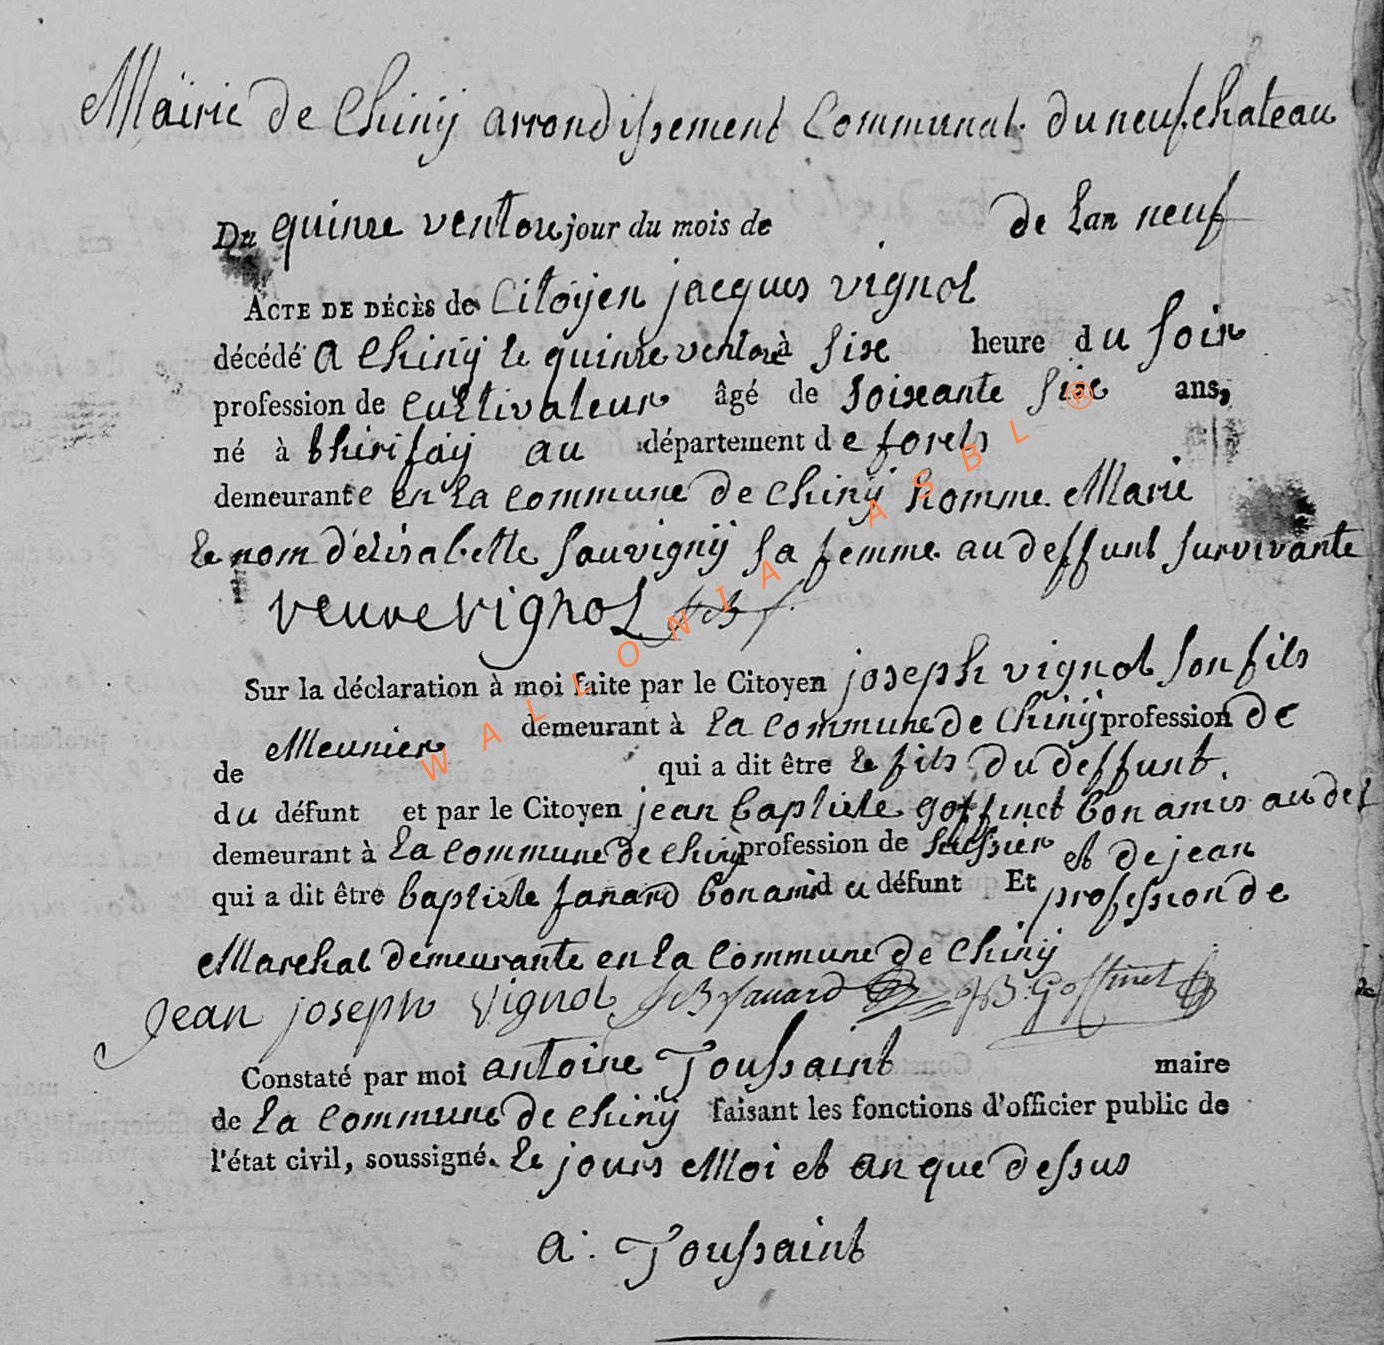 Mairie de Chinÿ arrondissement Communal du neufchateau
Du quinze ventose jour du mois de de Lan neuf
ACTE DE DÉCÈS de Citoÿen jacques vignol
décédé a Chinÿ le quinze ventose à six heure du soir
profession de cultivateur âgé de soixante six ans,
né à thirifaÿ au département de forets
demeurante en La commune de Chinÿ homme Marie
le nom d'elisabette sauvignÿ sa femme au deffunt survivante
veuve vignol
Sur la déclaration à moi faite par le Citoyen joseph vignol son fils
demeurant à La commune de Chinÿ profession de
de Meunier qui a dit être le fils du deffunt.
du défunt et par le Citoyen jean baptiste goffinet bon amis au def
demeurant à La commune de Chinÿ profession de et de jean
qui a dit être baptiste fanard bon amis du défunt Et profession de
Marchal demeurante en La commune de Chinÿ
Jean joseph vignol JB fanard JB. Goffinet
Constaté par moi antoine Toussaint maire
de La commune de Chinÿ faisant les fonctions d'officier public de
l'état civil, soussigné. Le jours Moi et an que dessus
a. Toussaint
WALLONIA ASBL ®